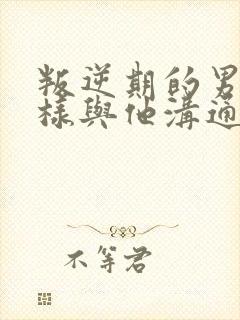 叛逆期的男
樣與他溝通
不等君